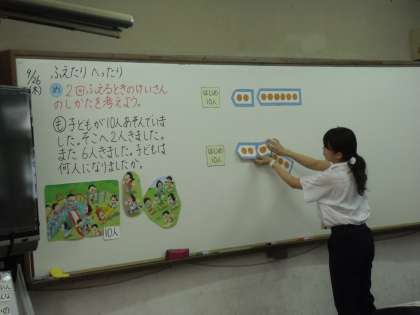 9/26
(木)
ふえたり へったり
め 2回ふえるときのけいさん
のしかたを考えよう。
も 子どもが10人あそんでいま
した。そこへ2人きました。
また 6人きました。子どもは
何人になりましたか。
10人
はじめ
10人
はじめ
10人